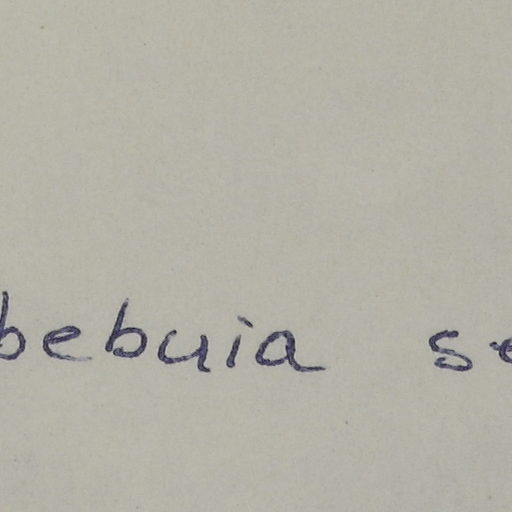 bebuia se